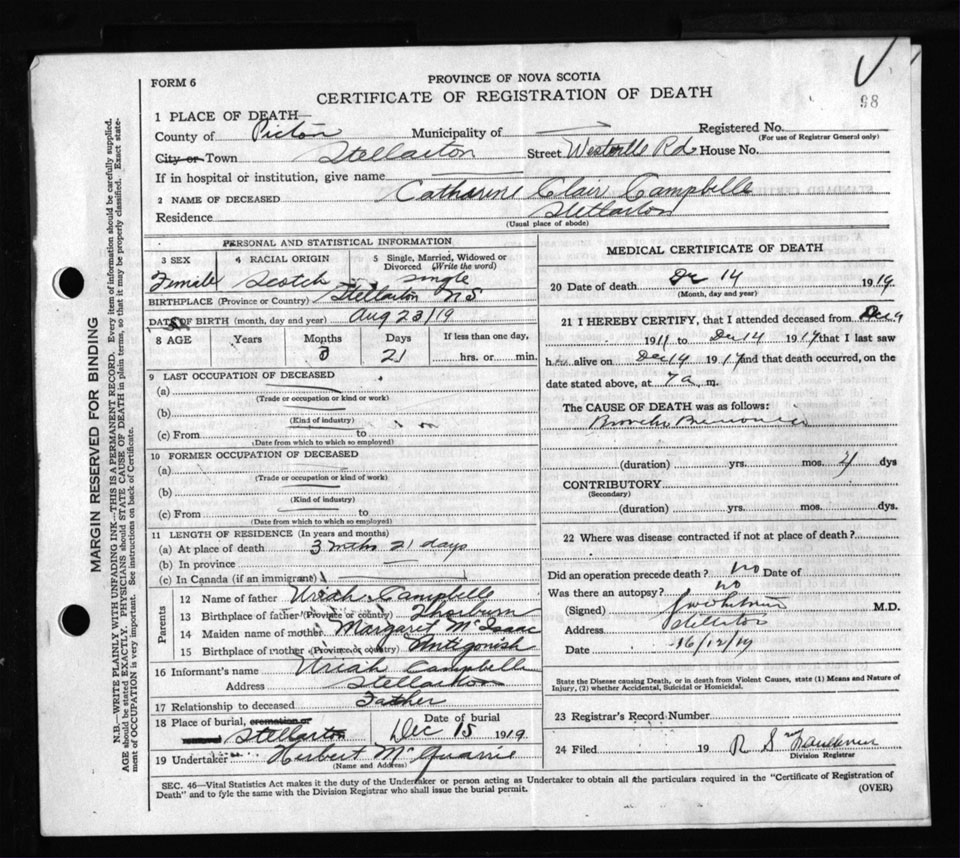 98
FORM 6
PROVINCE OF NOVA SCOTIA
CERTIFICATE OF REGISTRATION OF DEATH
1 PLACE OF DEATH—
County of Pictou Municipality of Registered No.
(For use of Registrar General only)
City or Town Stellarton Street Westville Rd House No.
If in hospital or institution, give name
2 NAME OF DECEASED Catharine Clair Campbell
Residence Stellarton
(Usual place of abode)
MARGIN RESERVED FOR BINDING
N.B.—WRITE PLAINLY WITH UNFADING INK—THIS IS A PERMANENT RECORD. Every item of information should be carefully supplied.
AGE should be stated EXACTLY. PHYSICIANS should STATE CAUSE OF DEATH in plain terms, so that it may be properly classified. Exact state-
ment of OCCUPATION is very important. See instructions on back of Certificate.
PERSONAL AND STATISTICAL INFORMATION
3 SEX 4 RACIAL ORIGIN 5 Single, Married, Widowed or
Divorced (Write the word)
Female Scotch single
BIRTHPLACE (Province or Country) Stellarton N.S
DATE OF BIRTH (month, day and year) Aug 23/19
8 AGE Years Months Days If less than one day,
3 21 hrs. or min.
9 LAST OCCUPATION OF DECEASED
(a)
(Trade or occupation or kind or work)
(b)
(Kind of industry)
(c) From to
(Date from which to which so employed)
10 FORMER OCCUPATION OF DECEASED
(a)
(Trade or occupation or kind of work)
(b)
(Kind of industry)
(c) From to
(Date from which to which so employed)
11 LENGTH OF RESIDENCE (In years and months)
(a) At place of death 3 mths 21 days
(b) In province
(c) In Canada (if an immigrant)
Parents
12 Name of father Uriah Campbell
13 Birthplace of father (Province or country) Thorburn
14 Maiden name of mother Margaret McIsaac
15 Birthplace of mother (Province or country) Antigonish
16 Informant's name Uriah Campbell
Address Stellarton
17 Relationship to deceased Father
18 Place of burial, cremation or Date of burial
removal Stellarton Dec 15 1919.
19 Undertaker Herbert McQuarrie
(Name and Address)
MEDICAL CERTIFICATE OF DEATH
20 Date of death Dec 14 1919.
(Month, day and year)
21 I HEREBY CERTIFY, that I attended deceased from Dec 9
1911 to Dec 14 1919 that I last saw
her alive on Dec 14 1919 and that death occurred, on the
date stated above, at 7 a m.
The CAUSE OF DEATH was as follows:
Broncho Pneumonia
(duration) yrs. mos. dys
CONTRIBUTORY
(Secondary)
(duration) yrs. mos. dys.
22 Where was disease contracted if not at place of death?
Did an operation precede death? no Date of
Was there an autopsy? no
(Signed) M.D.
Address Stellarton
Date 16/12/19
State the Disease causing Death, or in death from Violent Causes, state (1) Means and Nature of
Injury, (2) whether Accidental, Suicidal or Homicidal.
23 Registrar's Record Number
24 Filed 19 R S Faulkner
Division Registrar
SEC. 46—Vital Statistics Act makes it the duty of the Undertaker or person acting as Undertaker to obtain all the particulars required in the "Certificate of Registration of
Death" and to fyle the same with the Division Registrar who shall issue the burial permit.
(OVER)